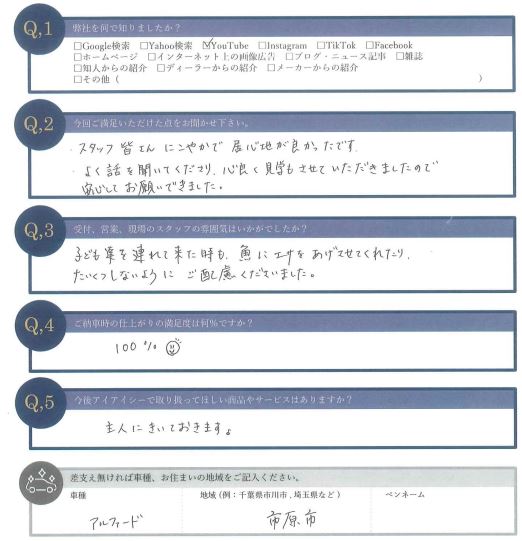 Q,1 弊社を何で知りましたか?
□Google検索 □Yahoo検索 ☑YouTube □Instagram □TikTok □Facebook
□ホームページ □インターネット上の画像広告 □ブログ・ニュース記事 □雑誌
□知人からの紹介 □ディーラーからの紹介 □メーカーからの紹介
□その他( )
Q,2 今回ご満足いただけた点をお聞かせ下さい。
・スタッフ皆さん にこやかで 居心地が良かったです.
・よく話を聞いてくださり、心良く見学もさせていただきましたので
安心してお願いできました。
Q,3 受付、営業、現場のスタッフの雰囲気はいかがでしたか?
子ども達を連れて来た時も、魚にエサをあげさせてくれたり、
たいくつしないように ご配慮くださいました。
Q,4 ご納車時の仕上がりの満足度は何%ですか?
100%
Q,5 今後アイアイシーで取り扱ってほしい商品やサービスはありますか?
主人にきいておきます。
差支え無ければ車種、お住まいの地域をご記入ください。
車種 地域(例:千葉県市川市,埼玉県など) ペンネーム
アルファード 市原市